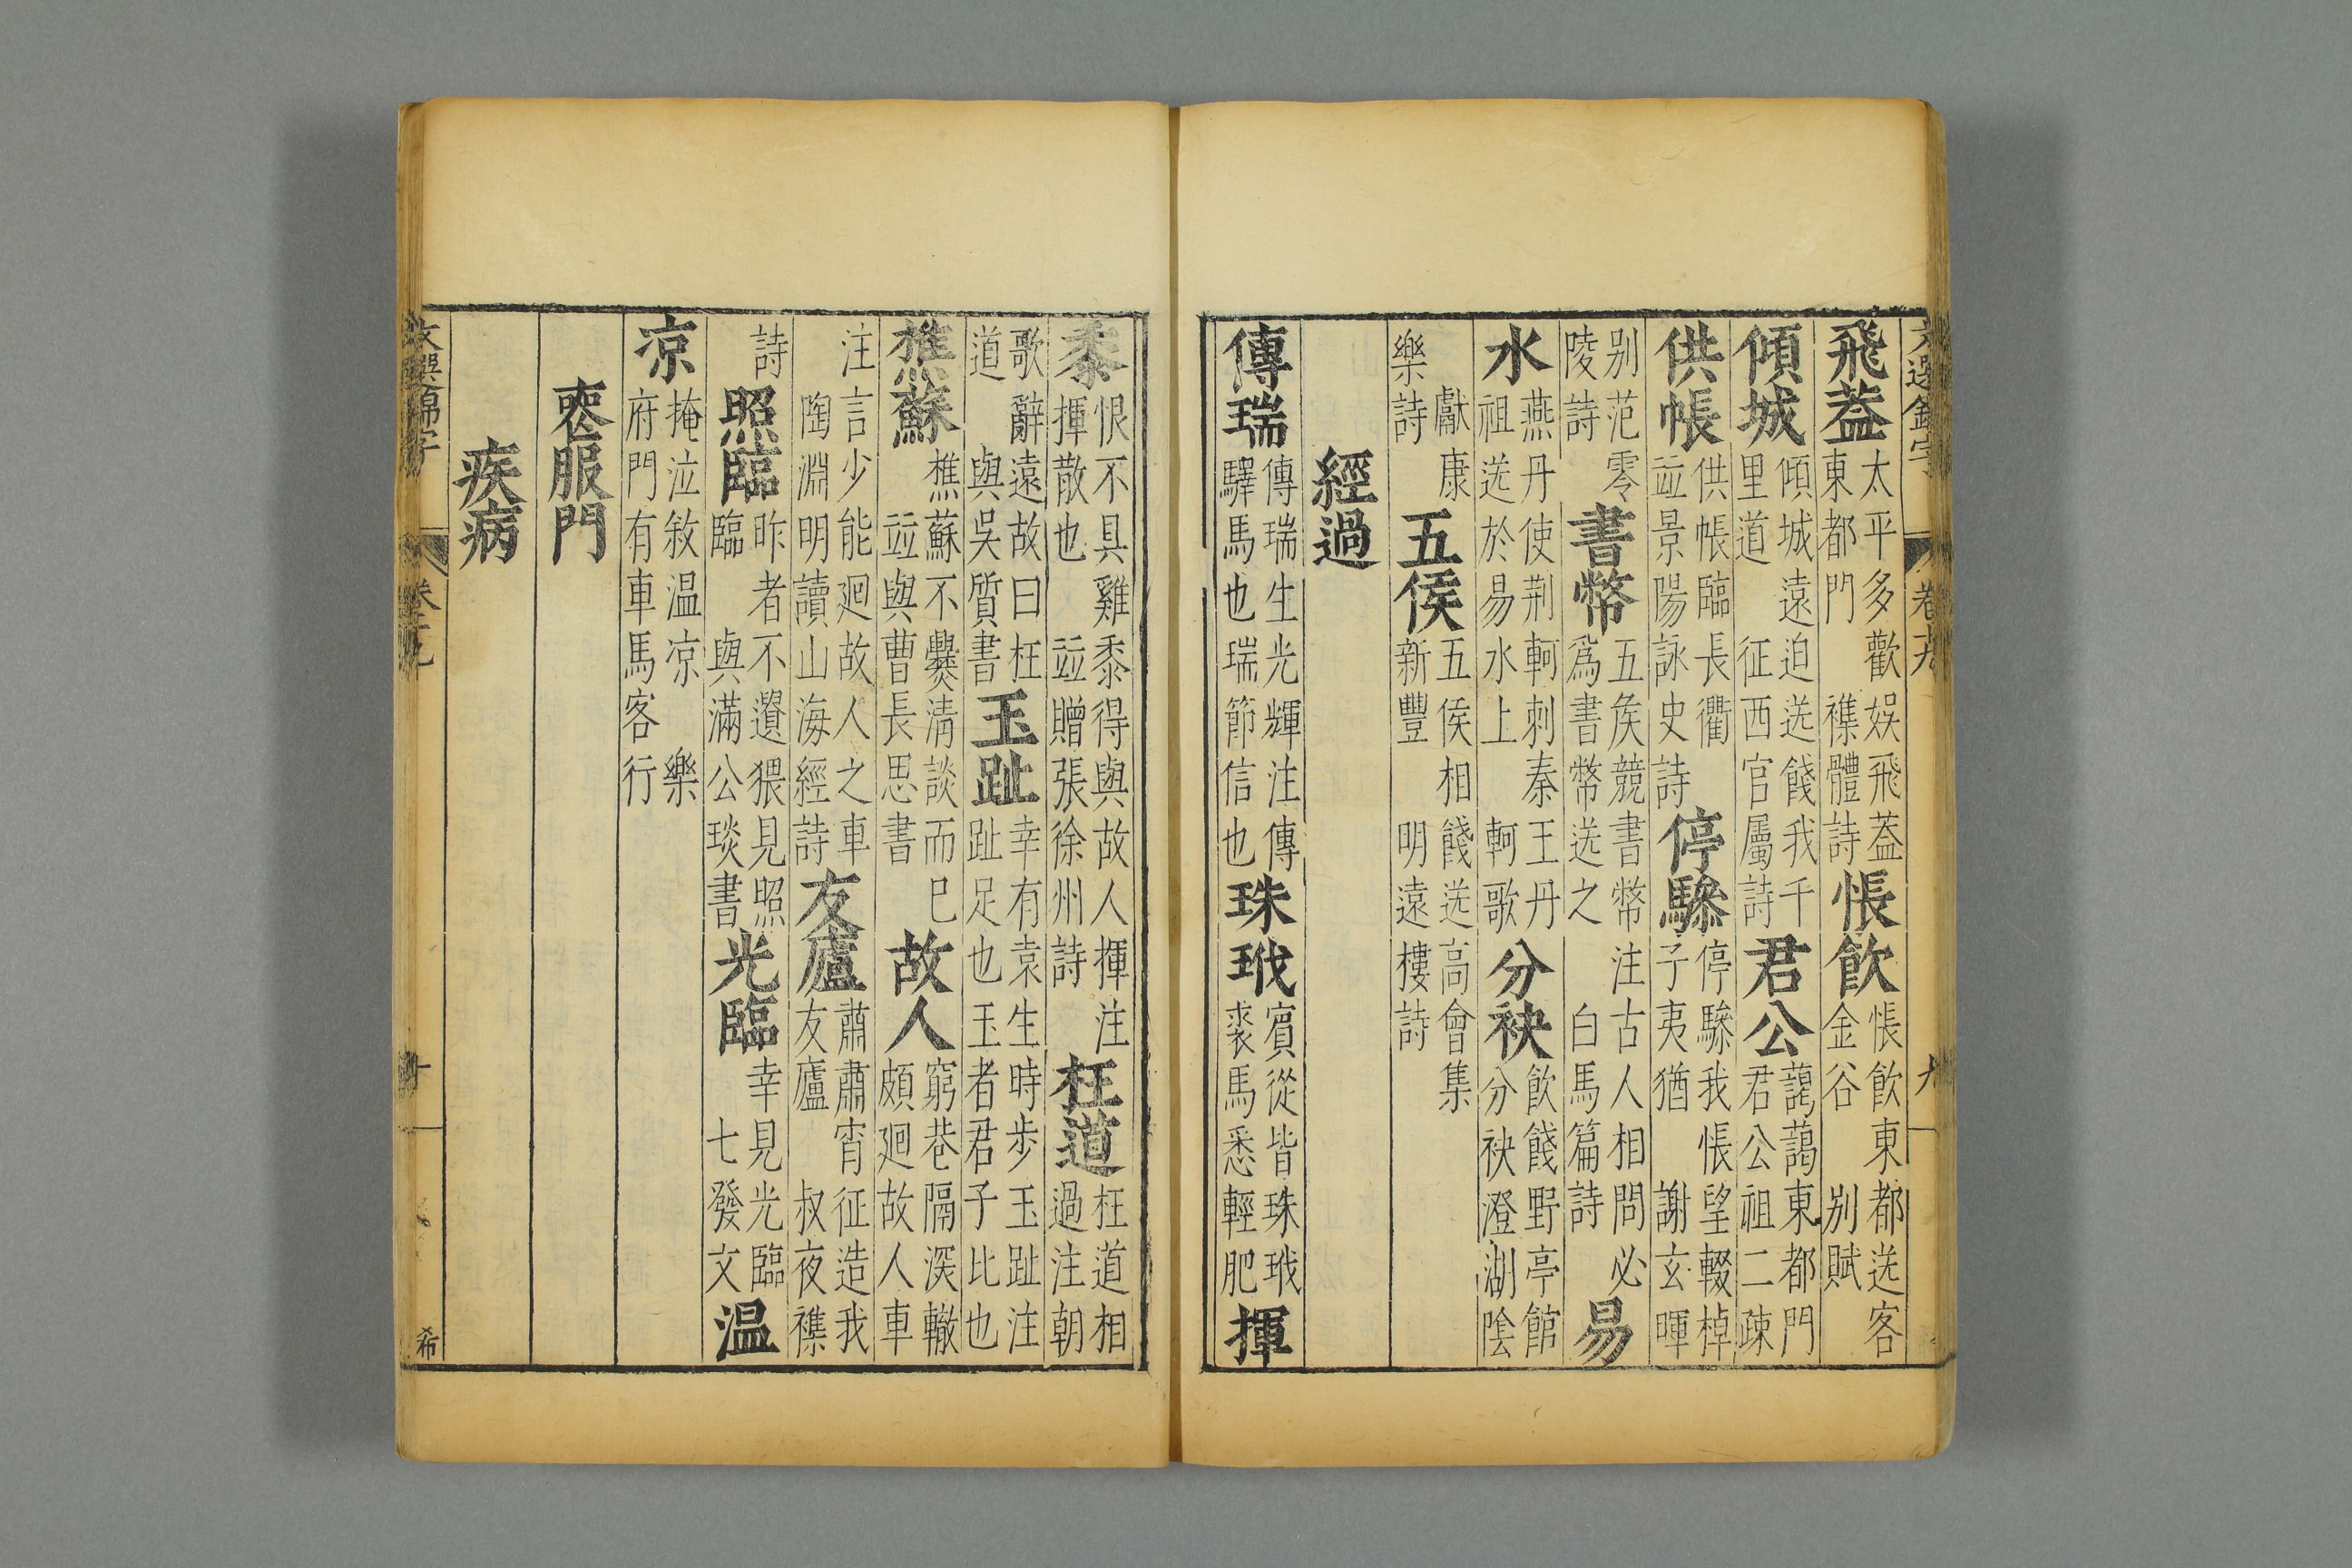 文選錦字 卷十九 九
飛蓋太平多歡娛飛蓋東都門 襍體詩帳飲帳飲東都送客金谷 别賦
傾城傾城遠迫送餞我千里道 征西官屬詩君公藹藹東都門君公祖二疎
供帳供帳臨長衢竝景陽詠史詩停驂停驂我悵望輟棹子夷猶 謝玄暉
别范零陵詩書幣五侯競書幣注古人相問必爲書幣送之 白馬篇詩易
水燕丹使荆軻刺秦王丹祖送於易水上 軻歌分袂飲餞野亭館分袂澄湖陰
獻康樂詩五侯五侯相餞送高會集新豐 明遠樓詩
經過
傳瑞傳瑞生光輝注傳驛馬也瑞節信也珠玳賓從皆珠玳裘馬悉輕肥揮
黍恨不具雞黍得與故人揮注揮散也 竝贈張徐州詩枉道枉道相過注朝
歌辭遠故曰枉道 與吳質書玉趾幸有袁生時步玉趾注趾足也玉者君子比也
樵蘇樵蘇不爨清談而已竝與曹長思書故人窮巷隔深轍頗廻故人車
注言少能廻故人之車陶淵明讀山海經詩友廬肅肅宵征造我友廬 叔夜襍
詩照臨昨者不遺猥見照臨 與滿公琰書光臨幸見光臨 七發文温
凉掩泣敘温凉 樂府門有車馬客行
喪服門
疾病
文選錦字 卷十九 十 希